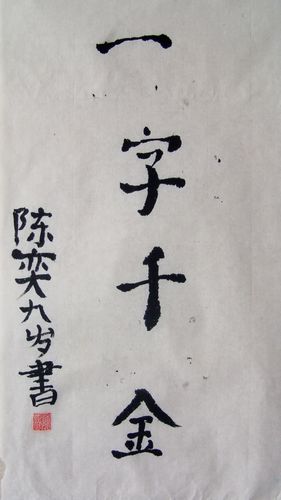 一字千金
陈奕九岁書